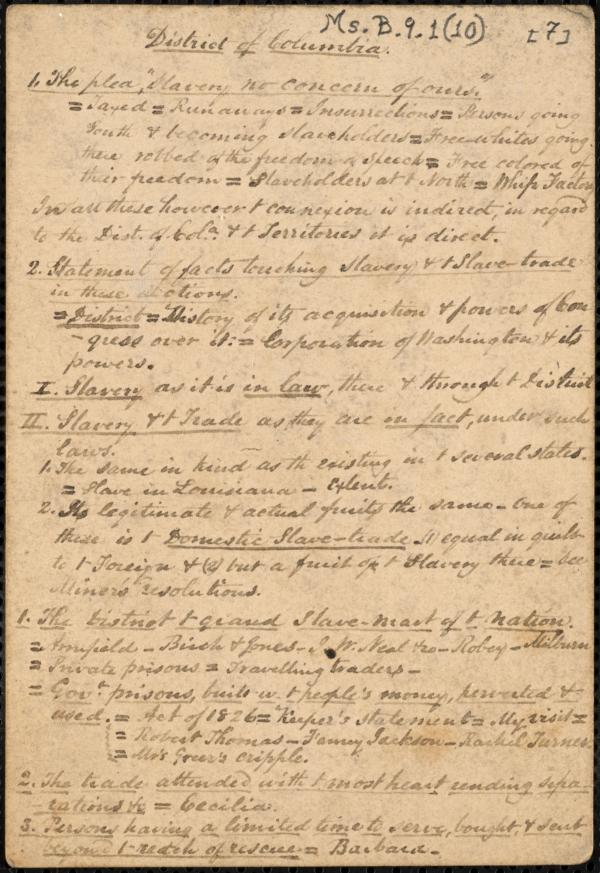 Ms. B. 9. 1 (10) [7]
District of Columbia.
1. The plea, "Slavery no concern of ours."
= Taxed = Runaways = Insurrections = Persons going
South & becoming slaveholders = Free whites going
there robbed of the freedom of speech = Free colored of
their freedom = Slaveholders at t North = Whip Factory
In all these however t connexion is indirect, in regard
to the Dist. of Cola. & t Territories it is direct.
2. Statement of facts touching Slavery & t Slave-trade
in these sections.
= District = History of its acquisition & powers of Con
-gress over it: = Corporation of Washington & its
powers.
I. Slavery as it is in law, there & through t District
II. Slavery & t Trade as they are in fact, under such
laws.
1. The same in kind as th existing in t several states.
= Slave in Louisiana - Extent.
2. Its legitimate & actual fruits the same - one of
these is t Domestic Slave-trade (1) equal in guilt
to t Foreign & (2) but a fruit of t Slavery there = See
Miner's resolutions.
1. The District t grand Slave-mart of t nation.
= Armfield - Birch & Jones - J. W. Neal & co - Robey - Milburn
= Private prisons = Travelling traders -
= Govt prisons, built w. t people's money, perverted &
used. = Act of 1826 = Keeper's statement = My visit =
= Robert Thomas - Fanney Jackson - Rachel Turner.
= Mrs Greer's cripple.
2. The trade attended with t most heart rending sepa-
rations &c = Cecilia.
3. Persons having a limited time to serve, bought, & sent
beyond t reach of rescue = Barbara -